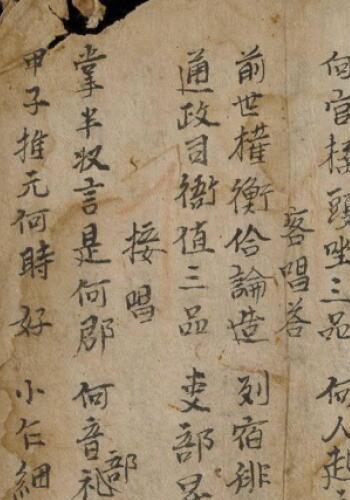 何官接頭坐三品 何人起
客唱答
前世權衡佮論造 列宿緋
通政司衙值三品 吏部
接唱
掌半収言是何郡 何音礼部
甲子推元何時好 小仁細